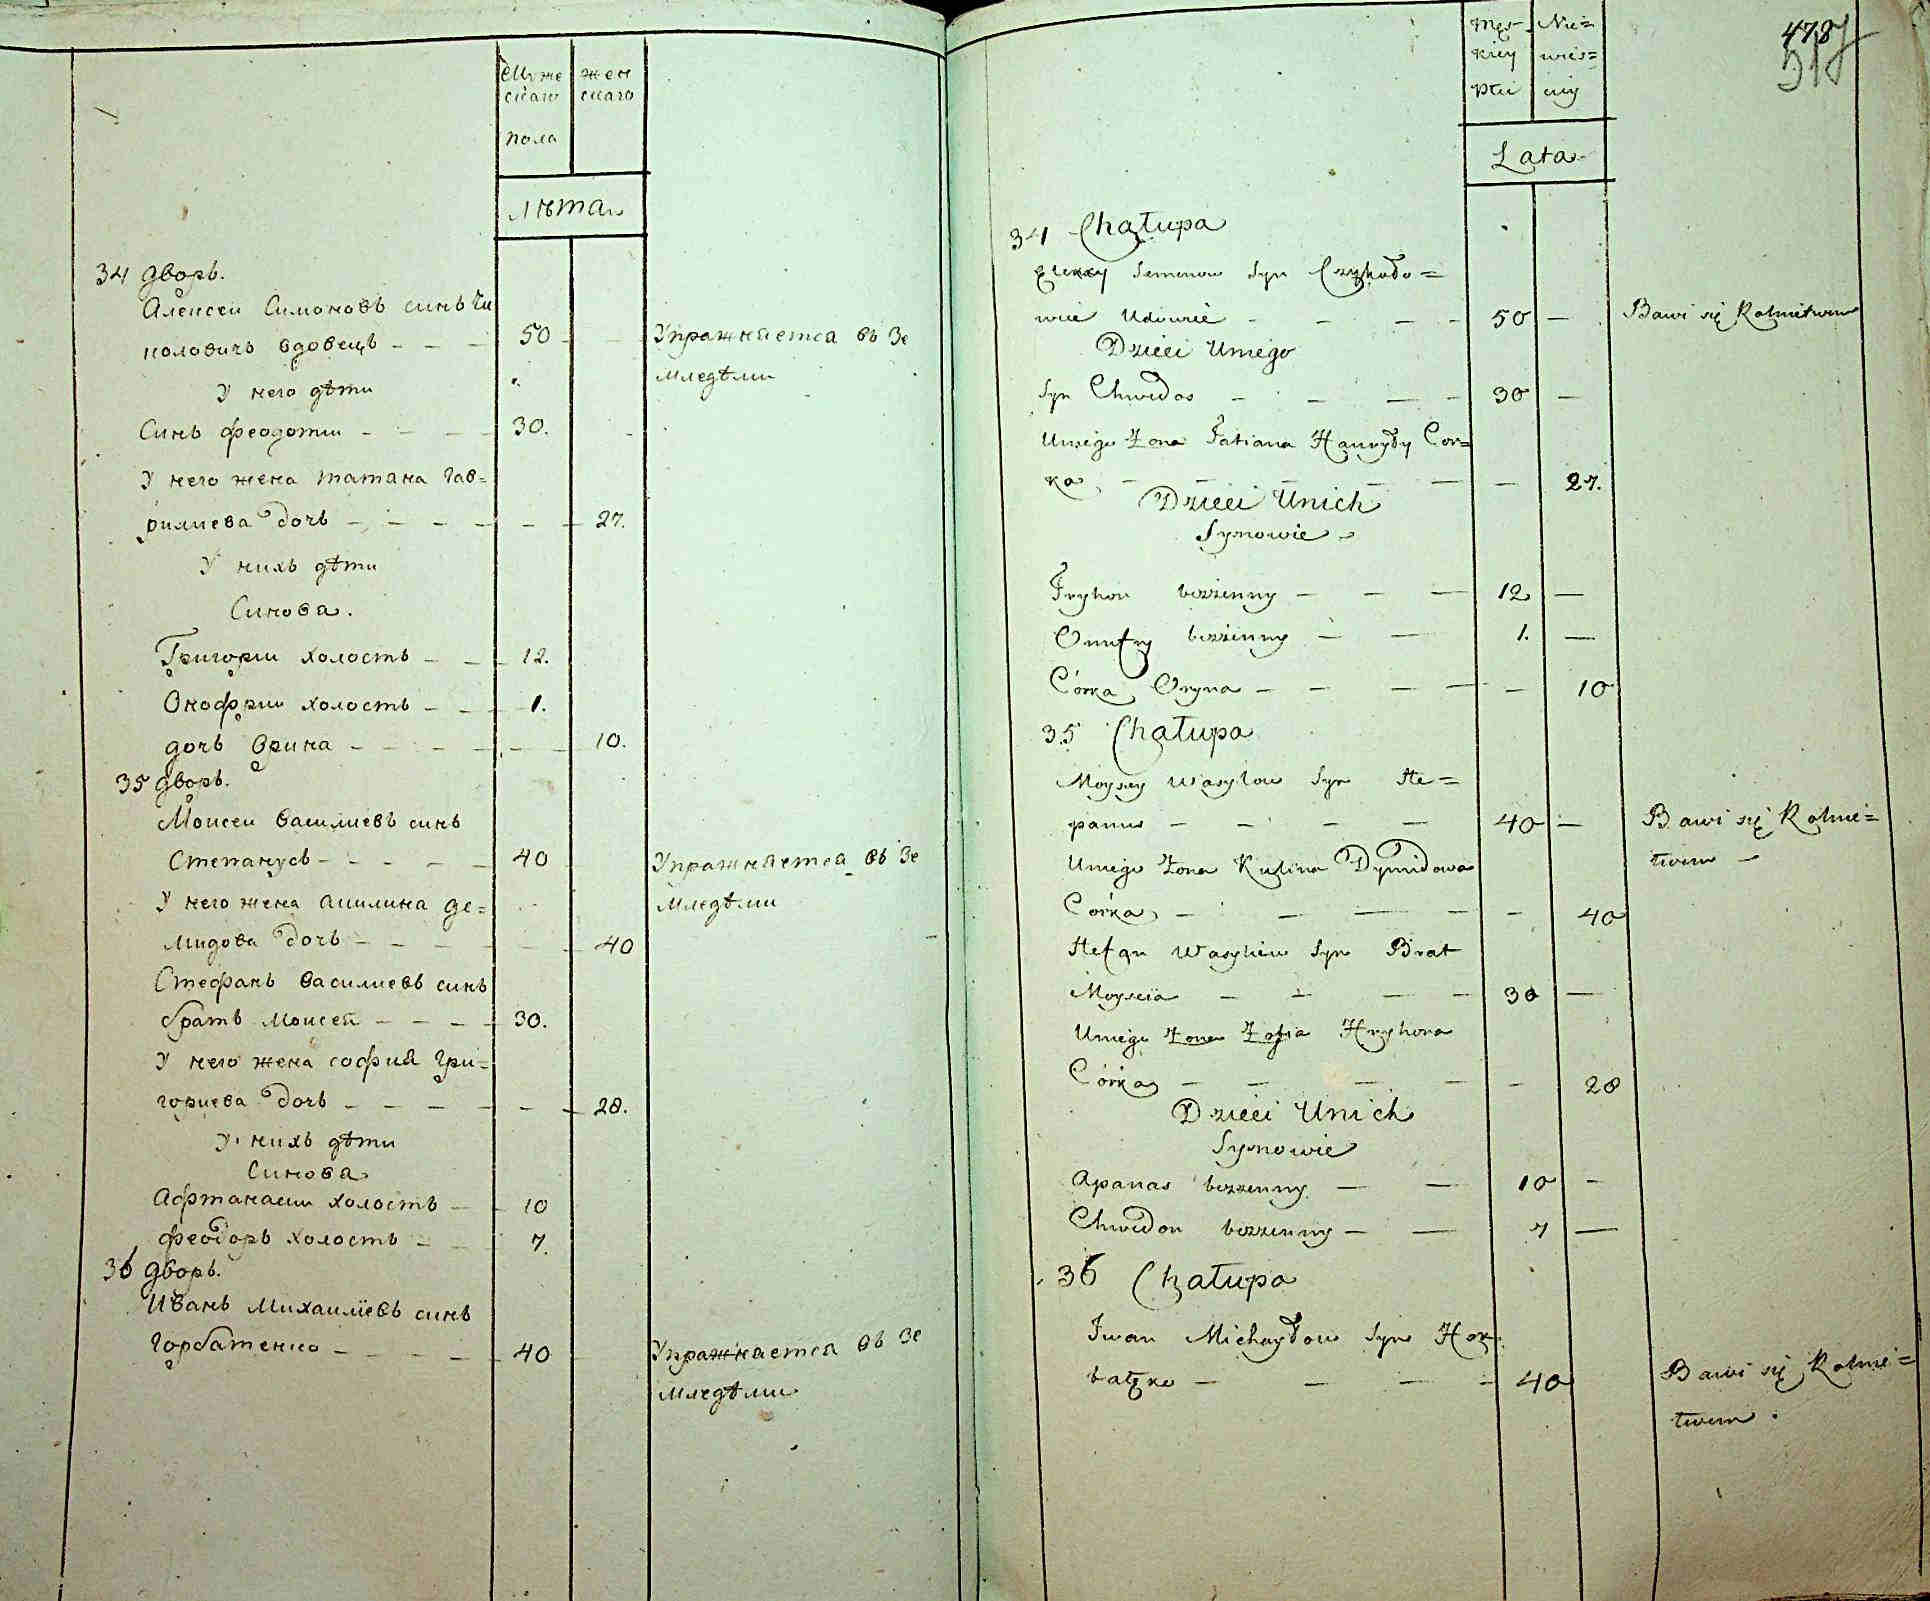 Муже
скаго
пола
жен
скаго
Лѣта
34 дворъ.
Алексеи Симоновъ синъ Чи
коловичъ вдовецъ - - - 50 - -
Упражняется въ Зе
Мледѣлии
У него дѣти
Синъ Феодотии - - - - 30.
У него жена татяна Гав=
рилиева дочъ - - - - - - 27.
У нихъ дѣти
Синова.
Григории холостъ - - - 12.
Онофрии холостъ - - - 1.
дочъ Орина - - - - - - 10.
35 дворъ.
Моисеи Василиевъ синъ
Степанусъ - - - - - 40
Упражняется въ Зе
Мледѣлии
У него жена Акилина де=
мидова дочъ - - - - - - 40
Стефанъ Василиевъ синъ
братъ Моисей - - - - 30.
У него жена софия Гри=
гориева дочъ - - - - - - 28.
У нихъ дѣти
Синова
Афтанасии холостъ - - 10
Феодоръ холостъ - - 7.
36 дворъ.
Иванъ Михаилиевъ синъ
Горбатенко - - - - - 40
Упражняется въ Зе
Мледѣлии
Męs-
kiey
Płci
Nie=
wies=
ciey
Lata
478
34 Chałupa
Semenow Syn
wicz Udowiec - - - - 50 -
Bawi się Rolnictwem
Dzieci Uniego
Syn Chwedos - - - - 30 -
Uniego Żona Tatiana Hawryły Cor=
ka - - - - - - 27.
Dzieci Unich
Synowie -
Hryhor bezżenny - - - 12 -
Onufry bezżenny - - 1. -
Córka Oryna - - - - - 10
35 Chałupa
Moysey Wasylow Syn Ste=
panus - - - - 40 -
Bawi się Rolnic=
twem -
Uniego Żona Kulina Dymidowa
Corka - - - - - 40
Stefan Wasylew Syn Brat
Moyseia - - - - 30 -
Uniego Żona Zofia Hryhora
Córka - - - - - 28
Dzieci Unich
Synowie
Apanas bezzenny - - 10 -
Chwedor bezzenny - - 7 -
36 Chałupa
Iwan Michayłow Syn Hor
batęko - - - - 40
Bawi się Rolnic=
twem .